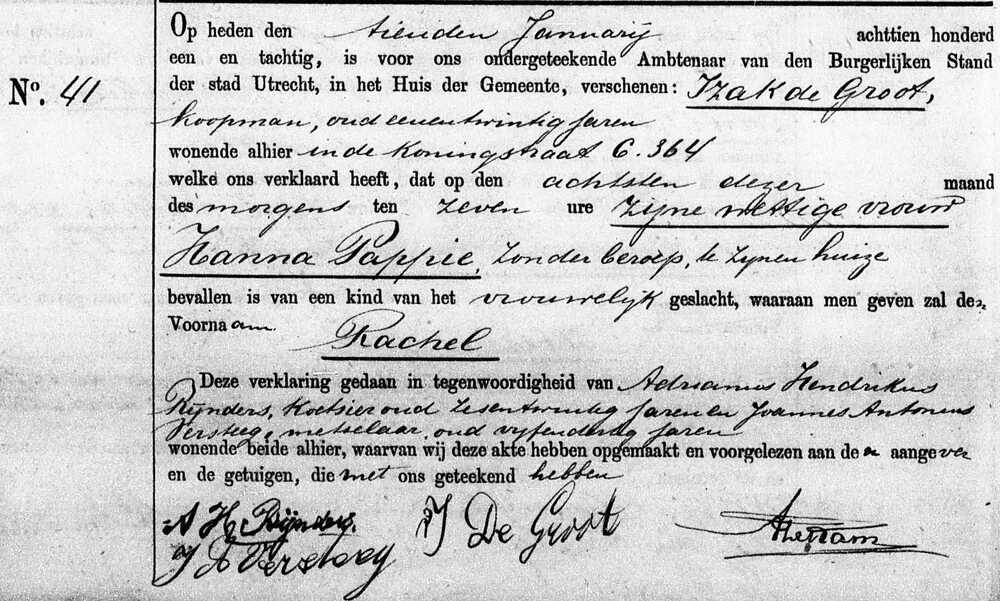 Op heden den tienden Januarij achttien honderd
een en tachtig, is voor ons ondergeteekende Ambtenaar van den Burgerlijken Stand
No. 41 der stad Utrecht, in het Huis der Gemeente, verschenen: Izak de Groot,
koopman, oud eenentwintig jaren
wonende alhier in de Koningstraat C. 364
welke ons verklaard heeft, dat op den achtsten dezer maand
des morgens ten zeven ure zijne wettige vrouw
Hanna Pappie, zonder beroep, te zijnen huize
bevallen is van een kind van het vrouwelijk geslacht, waaraan men geven zal den
Voornaam
Rachel
Deze verklaring gedaan in tegenwoordigheid van Adrianus Hendrikus
Rijnders, Koetsier oud zesentwintig jaren en Joannes Antonius
Versteeg, metselaar, oud vijfendertig jaren
wonende beide alhier, waarvan wij deze akte hebben opgemaakt en voorgelezen aan den aangever
en de getuigen, die met ons geteekend hebben
A H Rijnders. I De Groot
J A Versteeg